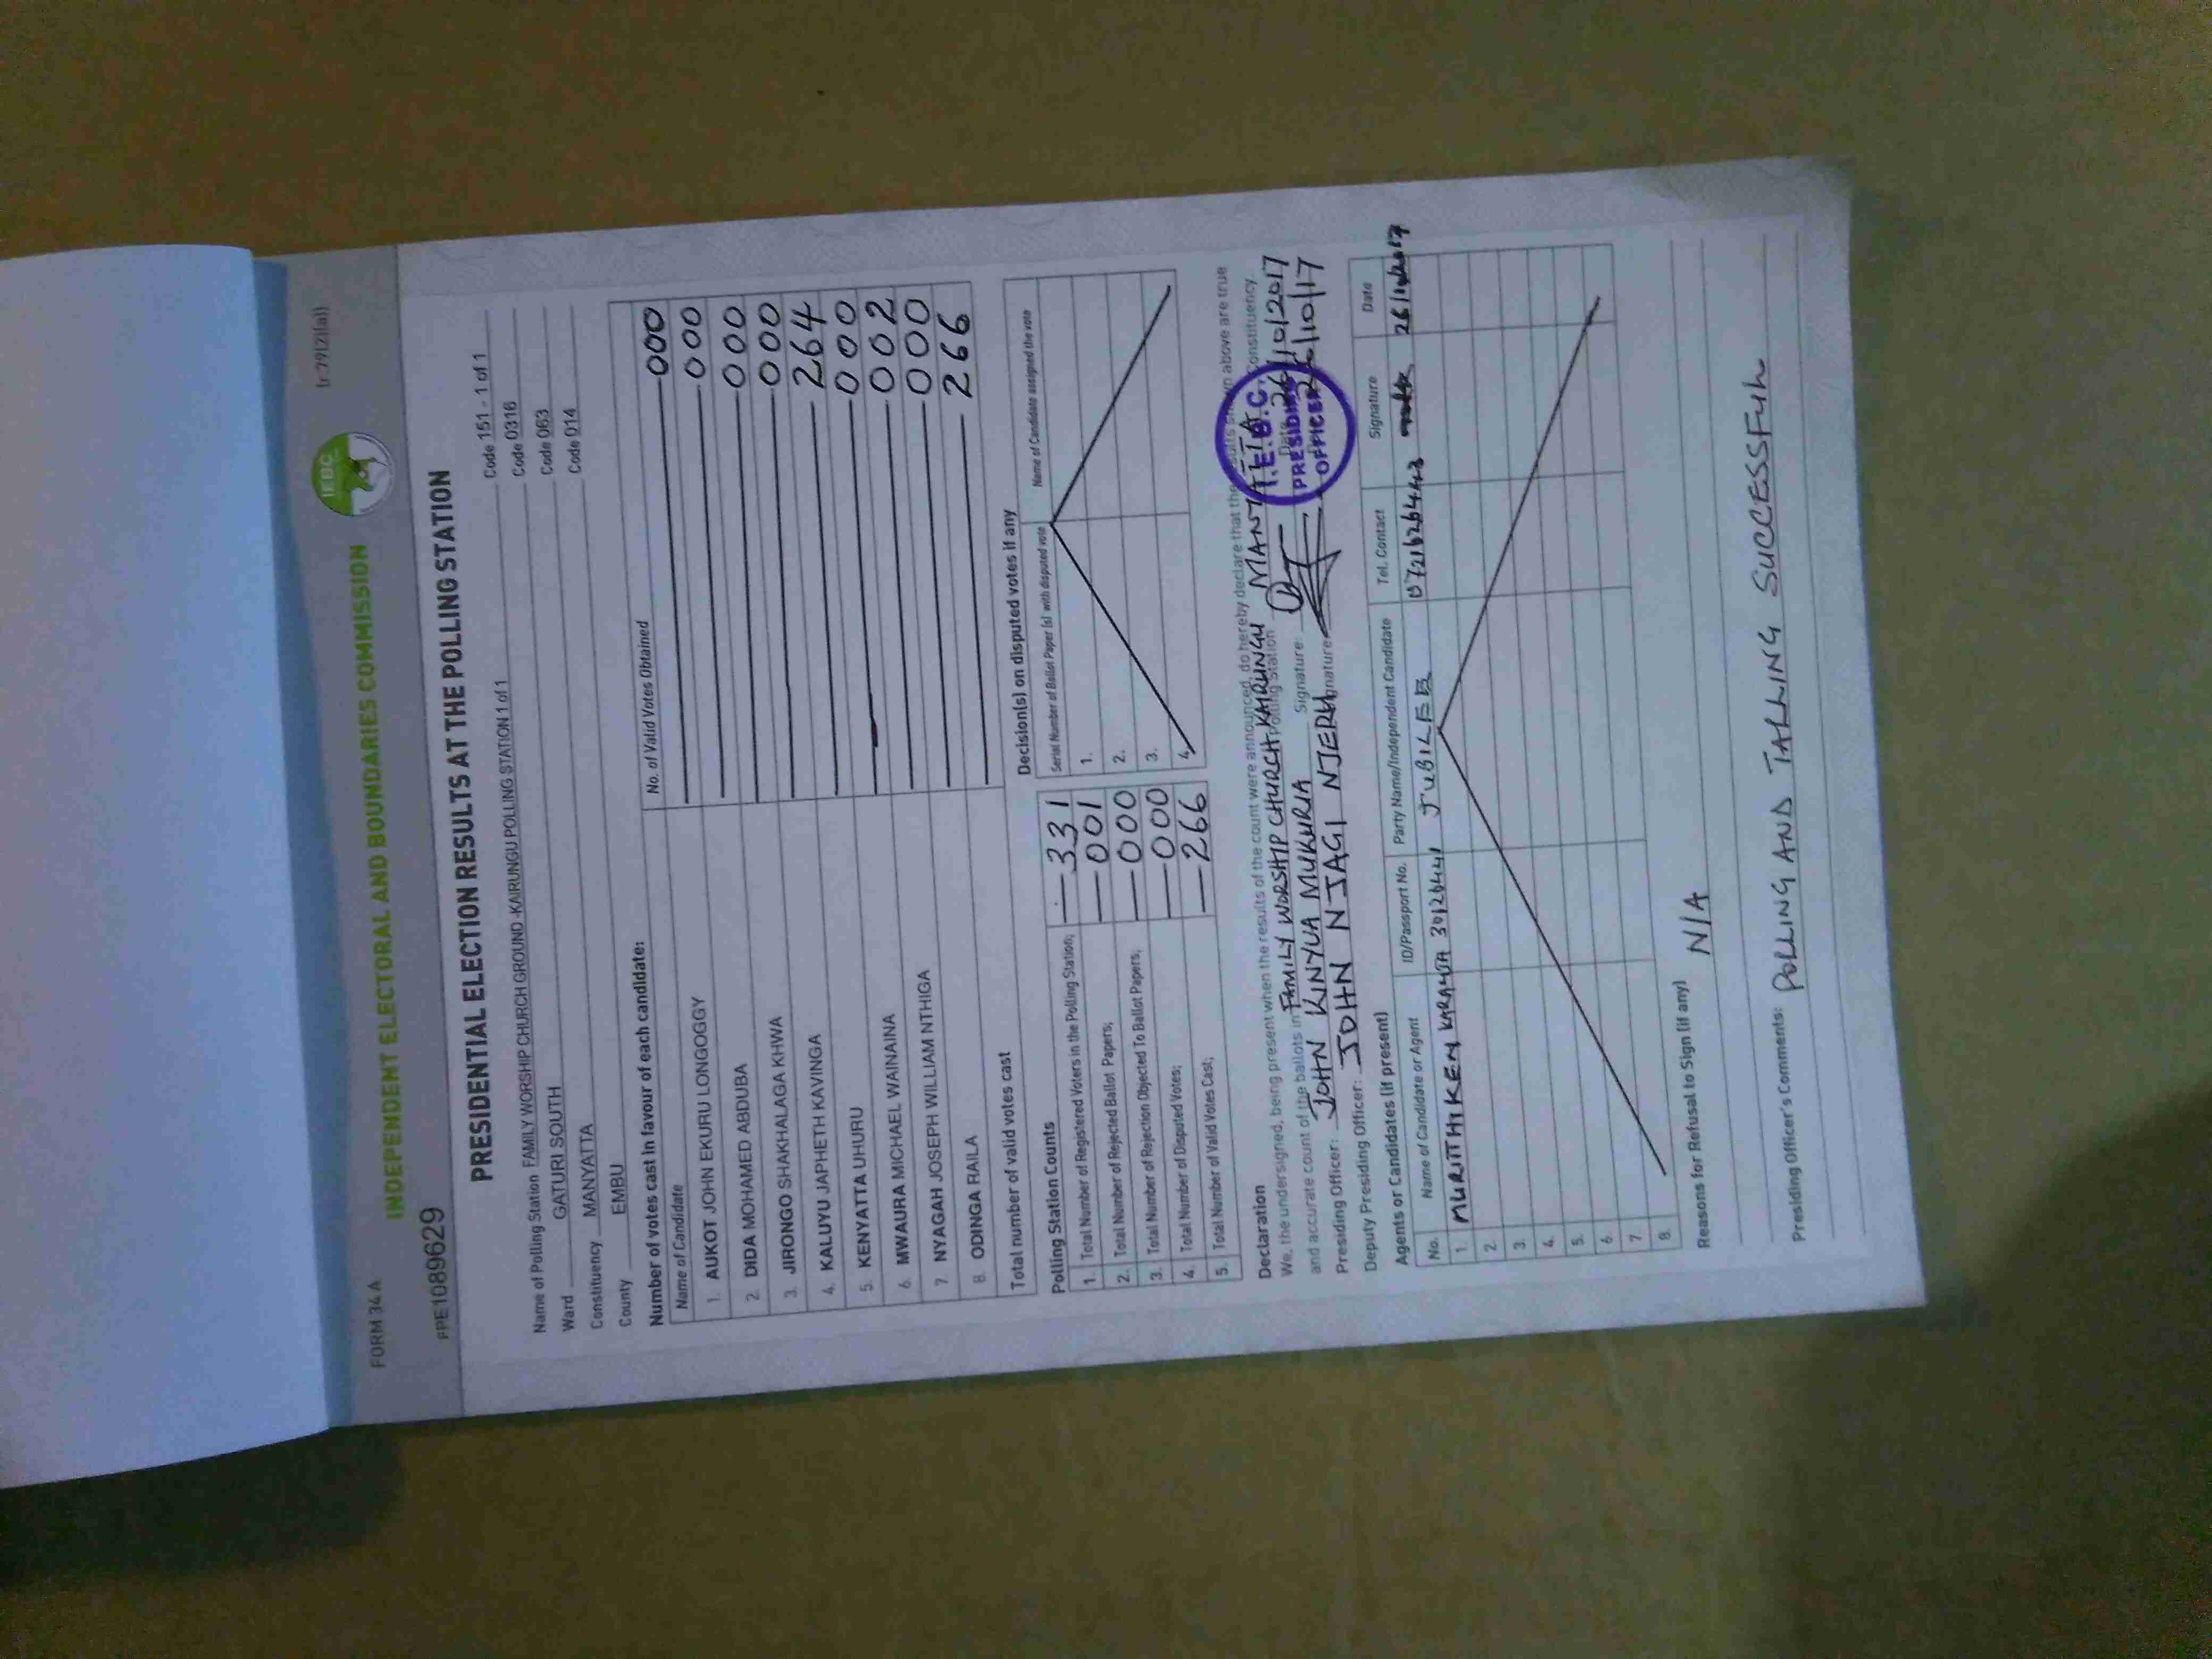 FORM 34 A
(r.79(2)(a))
INDEPENDENT ELECTORAL AND BOUNDARIES COMMISSION
IEBC
PPE1089629
PRESIDENTIAL ELECTION RESULTS AT THE POLLING STATION
Name of Polling Station FAMILY WORSHIP CHURCH GROUND -KAIRUNGU POLLING STATION 1 of 1 Code 151 - 1 of 1
Ward GATURI SOUTH Code 0316
Constituency MANYATTA Code 063
County EMBU Code 014
Number of votes cast in favour of each candidate:
Name of Candidate No. of Valid Votes Obtained
1. AUKOT JOHN EKURU LONGOGGY 000
2. DIDA MOHAMED ABDUBA 000
3. JIRONGO SHAKHALAGA KHWA 000
4. KALUYU JAPHETH KAVINGA 000
5. KENYATTA UHURU 264
6. MWAURA MICHAEL WAINAINA 000
7. NYAGAH JOSEPH WILLIAM NTHIGA 002
8. ODINGA RAILA 000
Total number of valid votes cast 266
Polling Station Counts
1. Total Number of Registered Voters in the Polling Station; 331
2. Total Number of Rejected Ballot Papers; 001
3. Total Number of Rejection Objected To Ballot Papers; 000
4. Total Number of Disputed Votes; 000
5. Total Number of Valid Votes Cast; 266
Decision(s) on disputed votes if any
Serial Number of Ballot Paper (s) with disputed vote Name of Candidate assigned the vote
1.
2.
3.
4.
Declaration
We, the undersigned, being present when the results of the count were announced, do hereby declare that the results shown above are true
and accurate count of the ballots in FAMILY WORSHIP CHURCH KAIRUNGU polling Station MANYATTA Constituency.
Presiding Officer: JOHN KINYUA MUKURIA Signature: Date 26/10/2017
Deputy Presiding Officer: JOHN NJAGI NJERU Signature 26/10/17
I.E.B.C.
PRESIDING
OFFICER
Agents or Candidates (if present)
No. Name of Candidate or Agent ID/Passport No. Party Name/Independent Candidate Tel. Contact Signature Date
1. MURIITHI KEN 30126441 JUBILEE 0721626443 26/10/2017
2.
3.
4.
5.
6.
7.
8.
Reasons for Refusal to Sign (if any) N/A
Presiding Officer's Comments: POLLING AND TALLING SUCCESSFUL